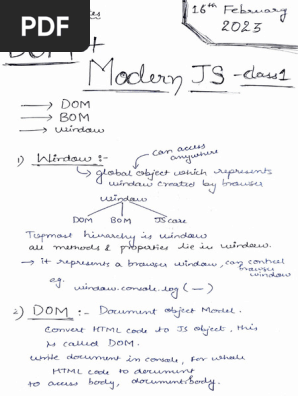 PDF
16th February
2023
DOM +
Modern JS - class 1
→ DOM
→ BOM
→ Window
can access
anywhere
1) Window :-
↳ global object which represents
window created by browser
window
DOM BOM JS core
Topmost hierarchy is window
all methods & properties lie in window.
→ it represents a browser window, can control
browser
window
eg.
window.console.log ( — )
2) DOM :- Document object Model.
Convert HTML code to JS object, this
is called DOM.
write document in console, for whole
HTML code to document
to access body, document.body.